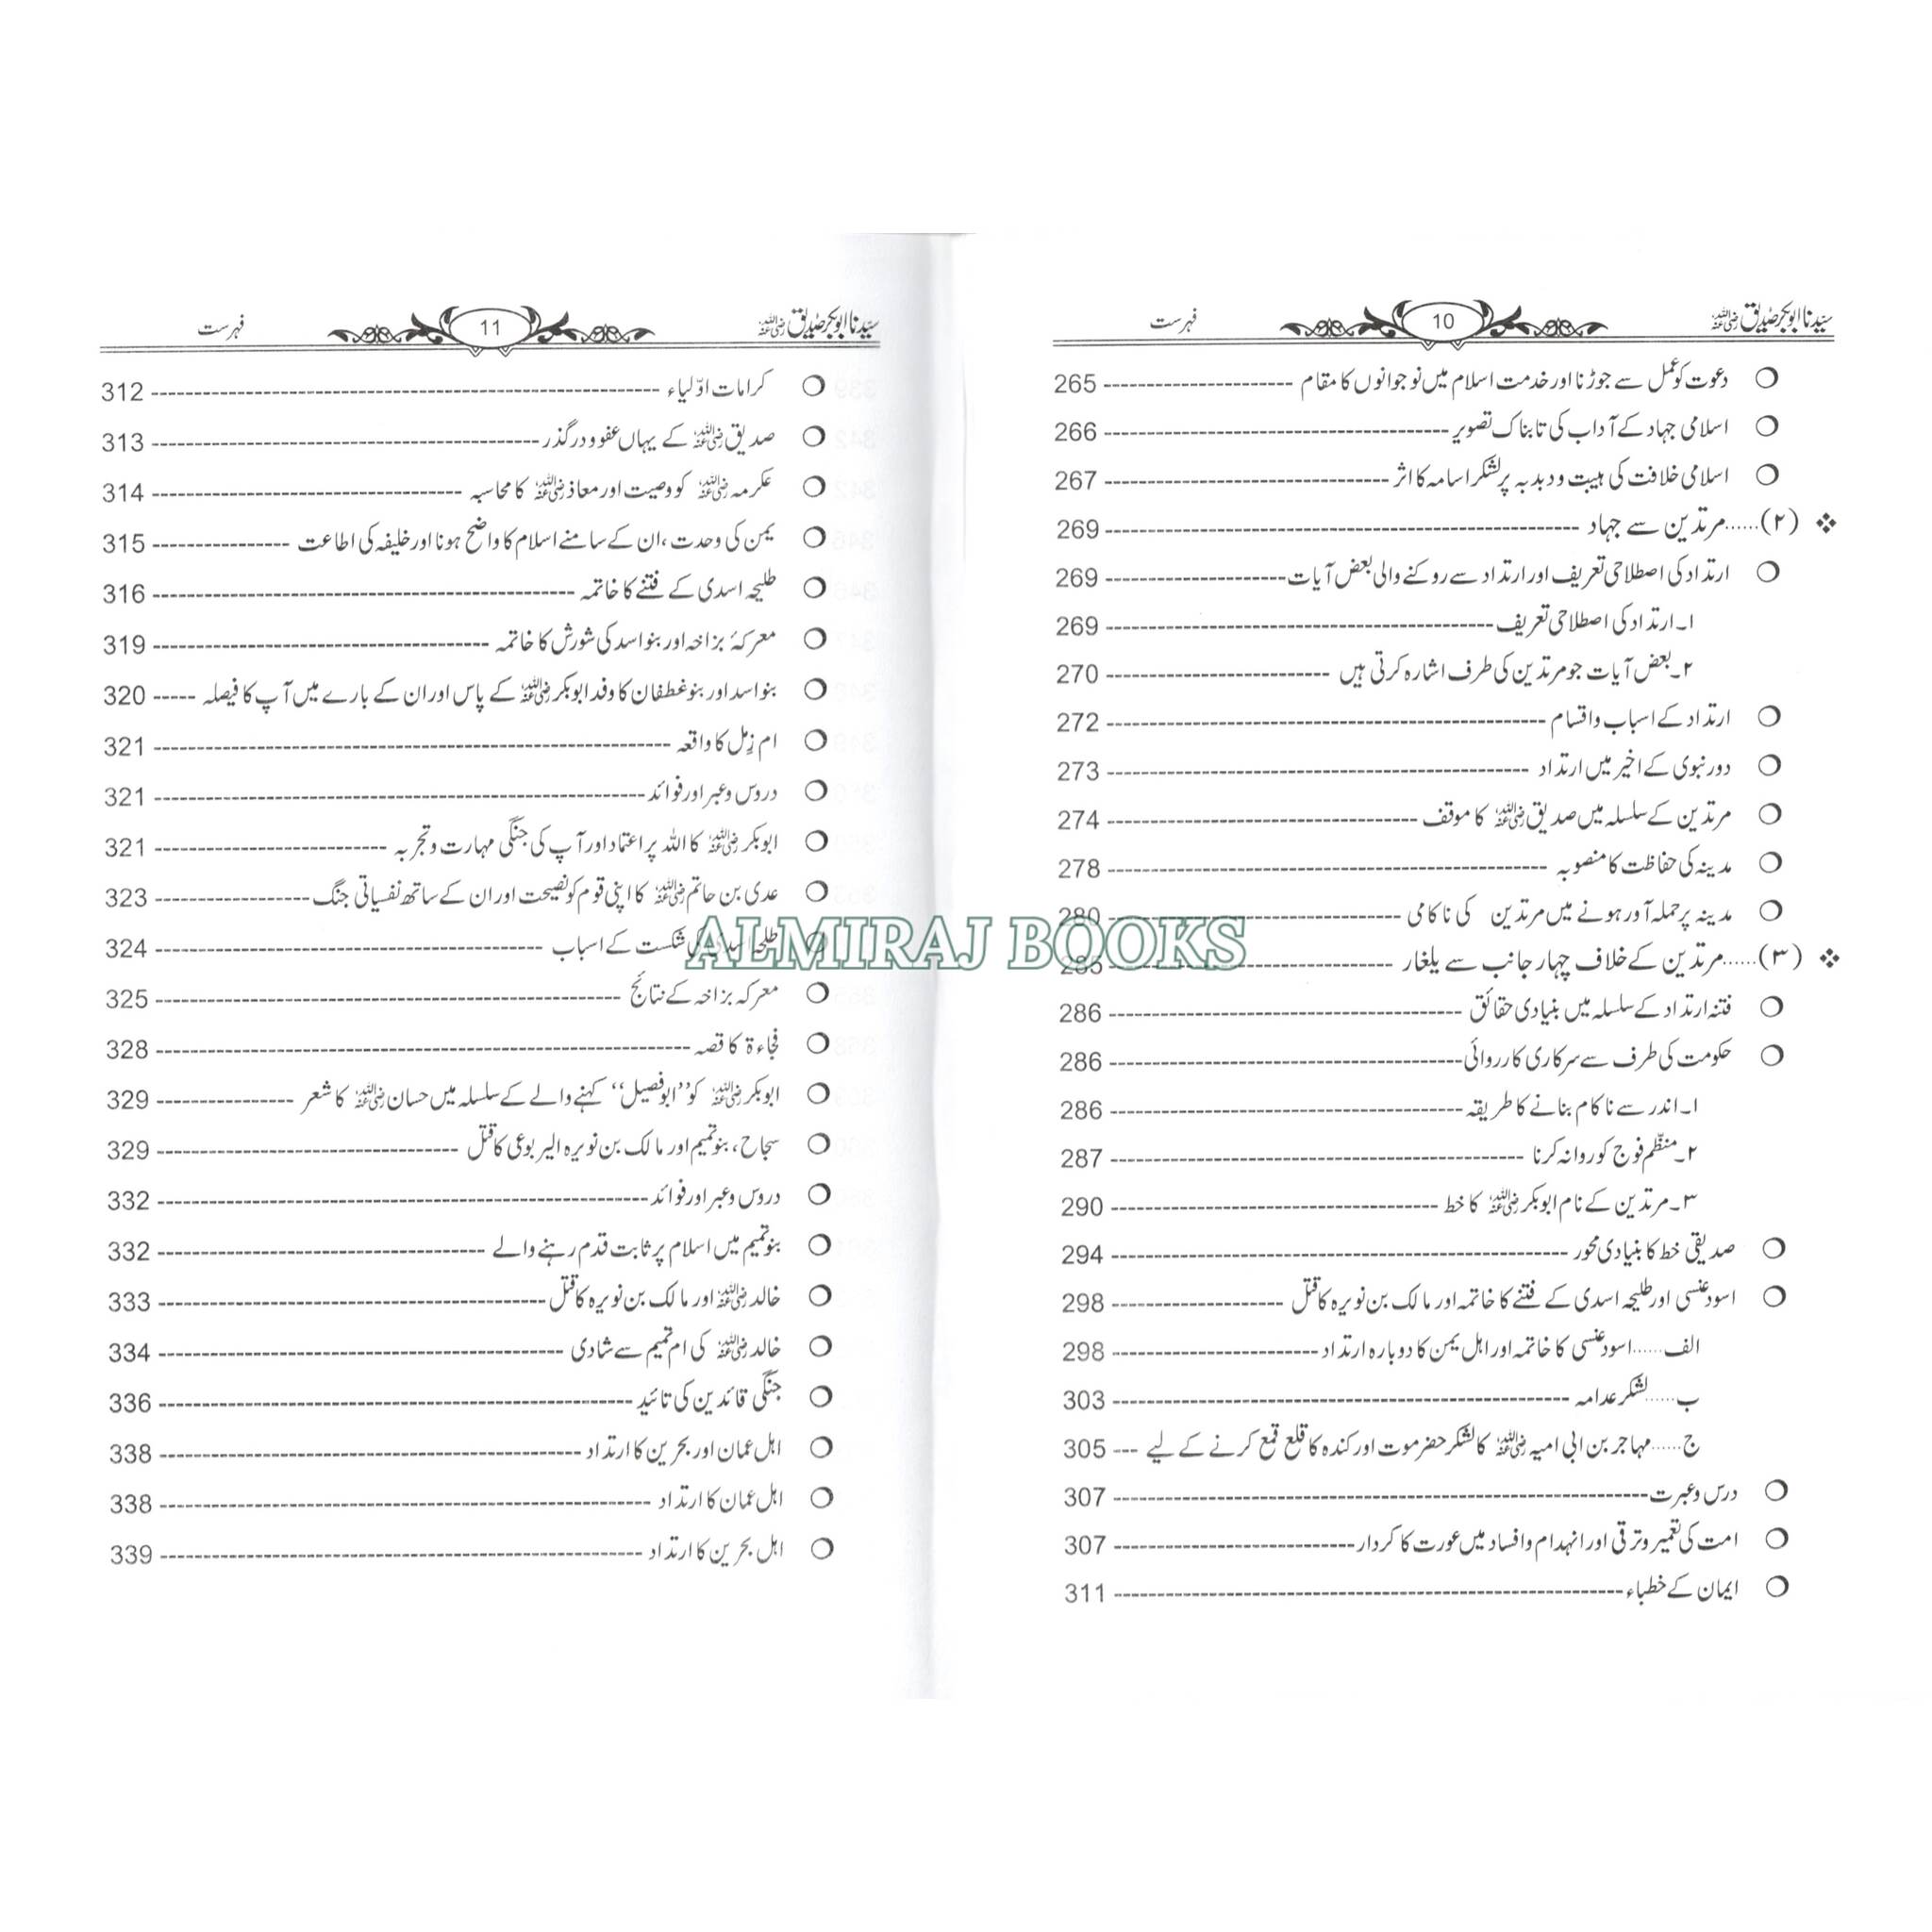 سیدنا ابوبکر صدیق رضی اللہ عنہ 10 فہرست
دعوت کو عمل سے جوڑنا اور خدمت اسلام میں نوجوانوں کا مقام 265
اسلامی جہاد کے آداب کی تابناک تصویر 266
اسلامی خلافت کی ہیبت و دبدبہ پر لشکر اسامہ کا اثر 267
(۲)......مرتدین سے جہاد 269
ارتداد کی اصطلاحی تعریف اور ارتداد سے روکنے والی بعض آیات 269
۱۔ ارتداد کی اصطلاحی تعریف 269
۲۔ بعض آیات جو مرتدین کی طرف اشارہ کرتی ہیں 270
ارتداد کے اسباب و اقسام 272
دور نبوی کے اخیر میں ارتداد 273
مرتدین کے سلسلہ میں صدیق رضی اللہ عنہ کا موقف 274
مدینہ کی حفاظت کا منصوبہ 278
مدینہ پر حملہ آور ہونے میں مرتدین کی ناکامی 280
(۳)......مرتدین کے خلاف چہار جانب سے یلغار 285
فتنہ ارتداد کے سلسلہ میں بنیادی حقائق 286
حکومت کی طرف سے سرکاری کارروائی 286
۱۔ اندر سے ناکام بنانے کا طریقہ 286
۲۔ منظّم فوج کو روانہ کرنا 287
۳۔ مرتدین کے نام ابوبکر رضی اللہ عنہ کا خط 290
صدیقی خط کا بنیادی محور 294
اسود عنسی اور طلیحہ اسدی کے فتنے کا خاتمہ اور مالک بن نویرہ کا قتل 298
الف......اسود عنسی کا خاتمہ اور اہل یمن کا دوبارہ ارتداد 298
ب......لشکر عدامہ 303
ج......مہاجر بن ابی امیہ رضی اللہ عنہ کا لشکر حضرموت اور کندہ کا قلع قمع کرنے کے لیے 305
درس و عبرت 307
امت کی تعمیر و ترقی اور انہدام و افساد میں عورت کا کردار 307
ایمان کے خطباء 311
سیدنا ابوبکر صدیق رضی اللہ عنہ 11 فہرست
کرامات اوّلیاء 312
صدیق رضی اللہ عنہ کے یہاں عفو و درگذر 313
عکرمہ رضی اللہ عنہ کو وصیت اور معاذ رضی اللہ عنہ کا محاسبہ 314
یمن کی وحدت، ان کے سامنے اسلام کا واضح ہونا اور خلیفہ کی اطاعت 315
طلیحہ اسدی کے فتنے کا خاتمہ 316
معرکۂ بزاخہ اور بنو اسد کی شورش کا خاتمہ 319
بنو اسد اور بنو غطفان کا وفد ابوبکر رضی اللہ عنہ کے پاس اور ان کے بارے میں آپ کا فیصلہ 320
ام زِمل کا واقعہ 321
دروس و عبر اور فوائد 321
ابوبکر رضی اللہ عنہ کا اللہ پر اعتماد اور آپ کی جنگی مہارت و تجربہ 321
عدی بن حاتم رضی اللہ عنہ کا اپنی قوم کو نصیحت اور ان کے ساتھ نفسیاتی جنگ 323
طلحہ اسدی کی شکست کے اسباب 324
معرکہ بزاخہ کے نتائج 325
فجاءۃ کا قصہ 328
ابوبکر رضی اللہ عنہ کو ’’ابو فصیل‘‘ کہنے والے کے سلسلہ میں حسان رضی اللہ عنہ کا شعر 329
سجاح، بنو تمیم اور مالک بن نویرہ الیربوعی کا قتل 329
دروس و عبر اور فوائد 332
بنو تمیم میں اسلام پر ثابت قدم رہنے والے 332
خالد رضی اللہ عنہ اور مالک بن نویرہ کا قتل 333
خالد رضی اللہ عنہ کی ام تمیم سے شادی 334
جنگی قائدین کی تائید 336
اہل عمان اور بحرین کا ارتداد 338
اہل عمان کا ارتداد 338
اہل بحرین کا ارتداد 339
ALMIRAJ BOOKS